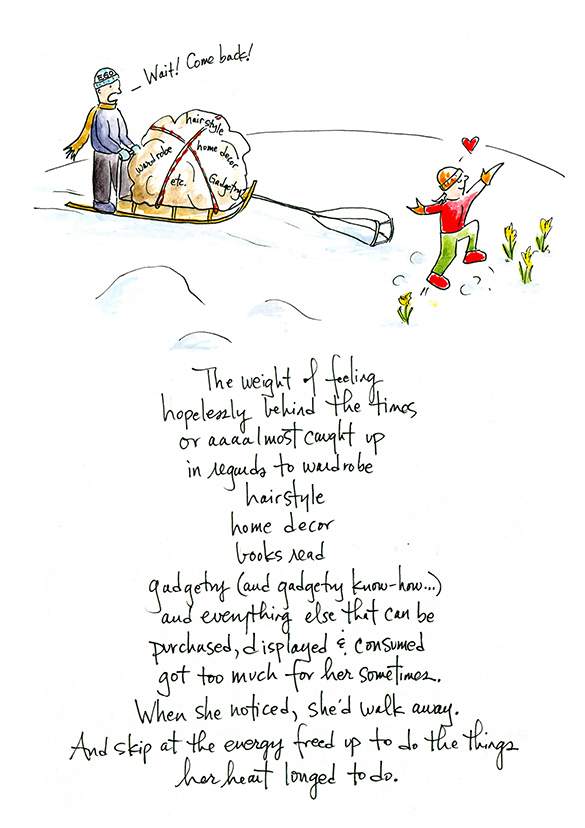 EGO
Wait! Come back!
hairstyle
wardrobe
home decor
etc.
Gadgetry
The weight of feeling
hopelessly behind the times
or aaaalmost caught up
in regards to wardrobe
hairstyle
home decor
books read
gadgetry (and gadgetry know-how...)
and everything else that can be
purchased, displayed & consumed
got too much for her sometimes.
When she noticed, she'd walk away.
And skip at the energy freed up to do the things
her heart longed to do.